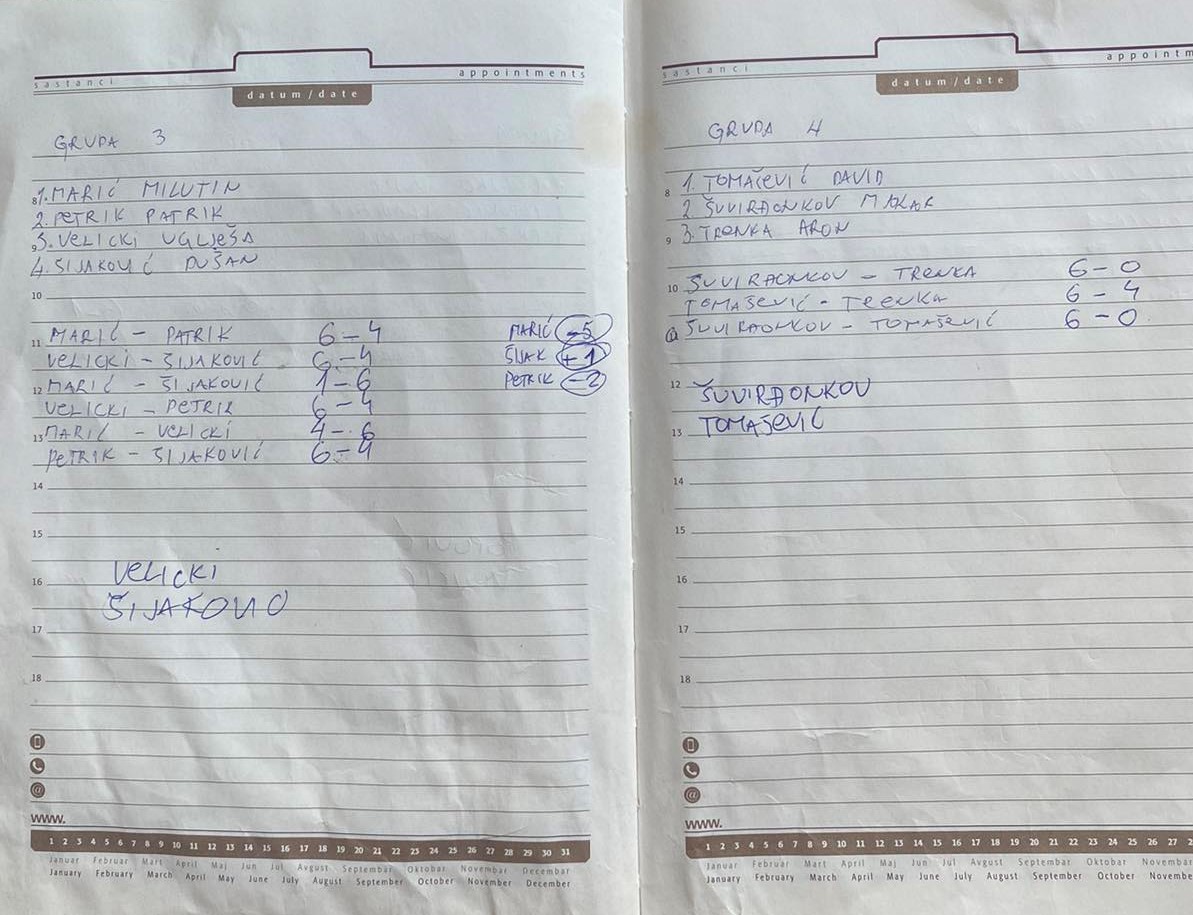 sastanci
appointments
datum/date
GRUPA 3
8 1. MARIĆ MILUTIN
2. PETRIK PATRIK
9 3. VELICKI UGLJEŠA
4. ŠIJAKOVIĆ DUŠAN
10
11 MARIĆ - PATRIK 6-4 MARIĆ -5
VELICKI - ŠIJAKOVIĆ 6-4 ŠIJAK +1
12 MARIĆ - ŠIJAKOVIĆ 1-6 PETRIK -2
VELICKI - PETRIK 6-4
13 MARIĆ - VELICKI 4-6
PETRIK - ŠIJAKOVIĆ 6-4
14
15
VELICKI
16
ŠIJAKOVIĆ
17
18
@
www.
1 2 3 4 5 6 7 8 9 10 11 12 13 14 15 16 17 18 19 20 21 22 23 24 25 26 27 28 29 30 31
Januar Februar Mart April Maj Jun Jul Avgust Septembar Oktobar Novembar Decembar
January February March April May June July August September October November December
sastanci
appointm
datum/date
GRUPA 4
8 1. TOMAŠEVIĆ DAVID
2. ŠUVIRAONKOV MAKAR
9 3. TRENKA ARON
10 ŠUVIRAONKOV - TRENKA 6-0
TOMAŠEVIĆ - TRENKA 6-4
ŠUVIRAONKOV - TOMAŠEVIĆ 6-0
12 ŠUVIRAONKOV
13 TOMAŠEVIĆ
14
15
16
17
18
@
www.
1 2 3 4 5 6 7 8 9 10 11 12 13 14 15 16 17 18 19 20 21 22 23 24 25 26 27 2
Januar Februar Mart April Maj Jun Jul Avgust Septembar Oktobar Novembar
January February March April May June July August September October Novembe